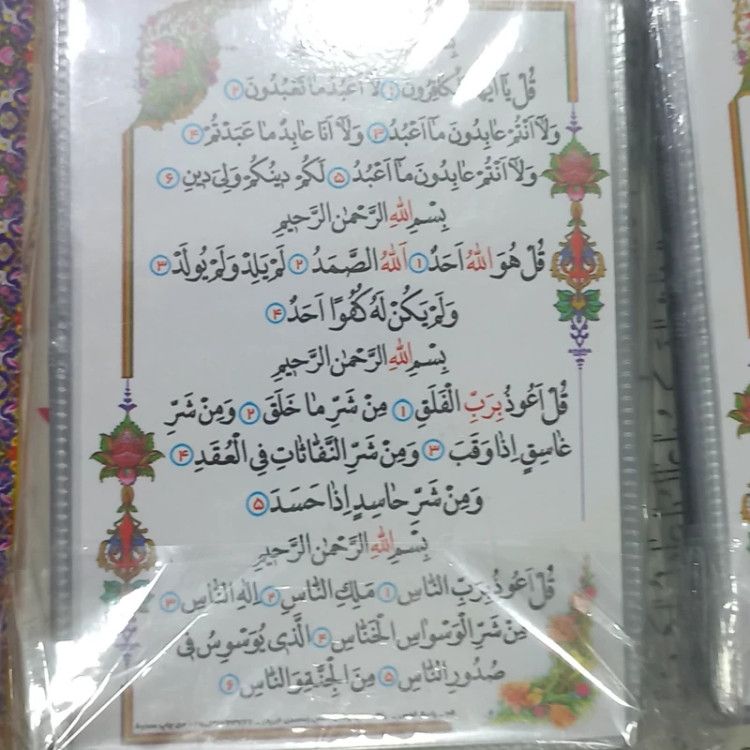 قُلْ يَا اَيُّهَا الْكَافِرُونَ ۱ لَا اَعْبُدُ مَا تَعْبُدُونَ ۲
وَلَا اَنْتُمْ عَابِدُونَ مَا اَعْبُدُ ۳ وَلَا اَنَا عَابِدٌ مَا عَبَدْتُمْ ۴
وَلَا اَنْتُمْ عَابِدُونَ مَا اَعْبُدُ ۵ لَكُمْ دِينُكُمْ وَلِیَ دِينِ ۶
بِسْمِ اللهِ الرَّحْمٰنِ الرَّحِيمِ
قُلْ هُوَ اللهُ اَحَدٌ ۱ اَللهُ الصَّمَدُ ۲ لَمْ يَلِدْ وَلَمْ يُولَدْ ۳
وَلَمْ يَكُنْ لَهُ كُفُوًا اَحَدٌ ۴
بِسْمِ اللهِ الرَّحْمٰنِ الرَّحِيمِ
قُلْ اَعُوذُ بِرَبِّ الْفَلَقِ ۱ مِنْ شَرِّ مَا خَلَقَ ۲ وَمِنْ شَرِّ
غَاسِقٍ اِذَا وَقَبَ ۳ وَمِنْ شَرِّ النَّفَّاثَاتِ فِی الْعُقَدِ ۴
وَمِنْ شَرِّ حَاسِدٍ اِذَا حَسَدَ ۵
بِسْمِ اللهِ الرَّحْمٰنِ الرَّحِيمِ
قُلْ اَعُوذُ بِرَبِّ النَّاسِ ۱ مَلِكِ النَّاسِ ۲ اِلٰهِ النَّاسِ ۳
مِنْ شَرِّ الْوَسْوَاسِ الْخَنَّاسِ ۴ الَّذِی يُوَسْوِسُ فِی
صُدُورِ النَّاسِ ۵ مِنَ الْجِنَّةِ وَالنَّاسِ ۶